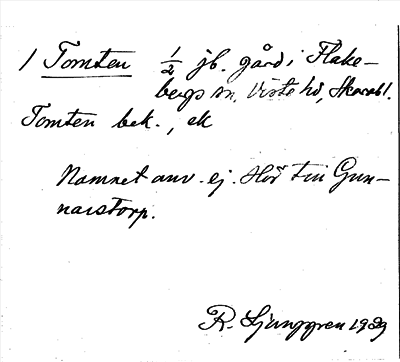 1 Tomten ½ jb. gård i Flake-
bergs sn, Viste hd, Skarab l.
Tomten bek., ek
Namnet anv. ej. Hör till Gun-
narstorp.
R. Ljunggren 1929